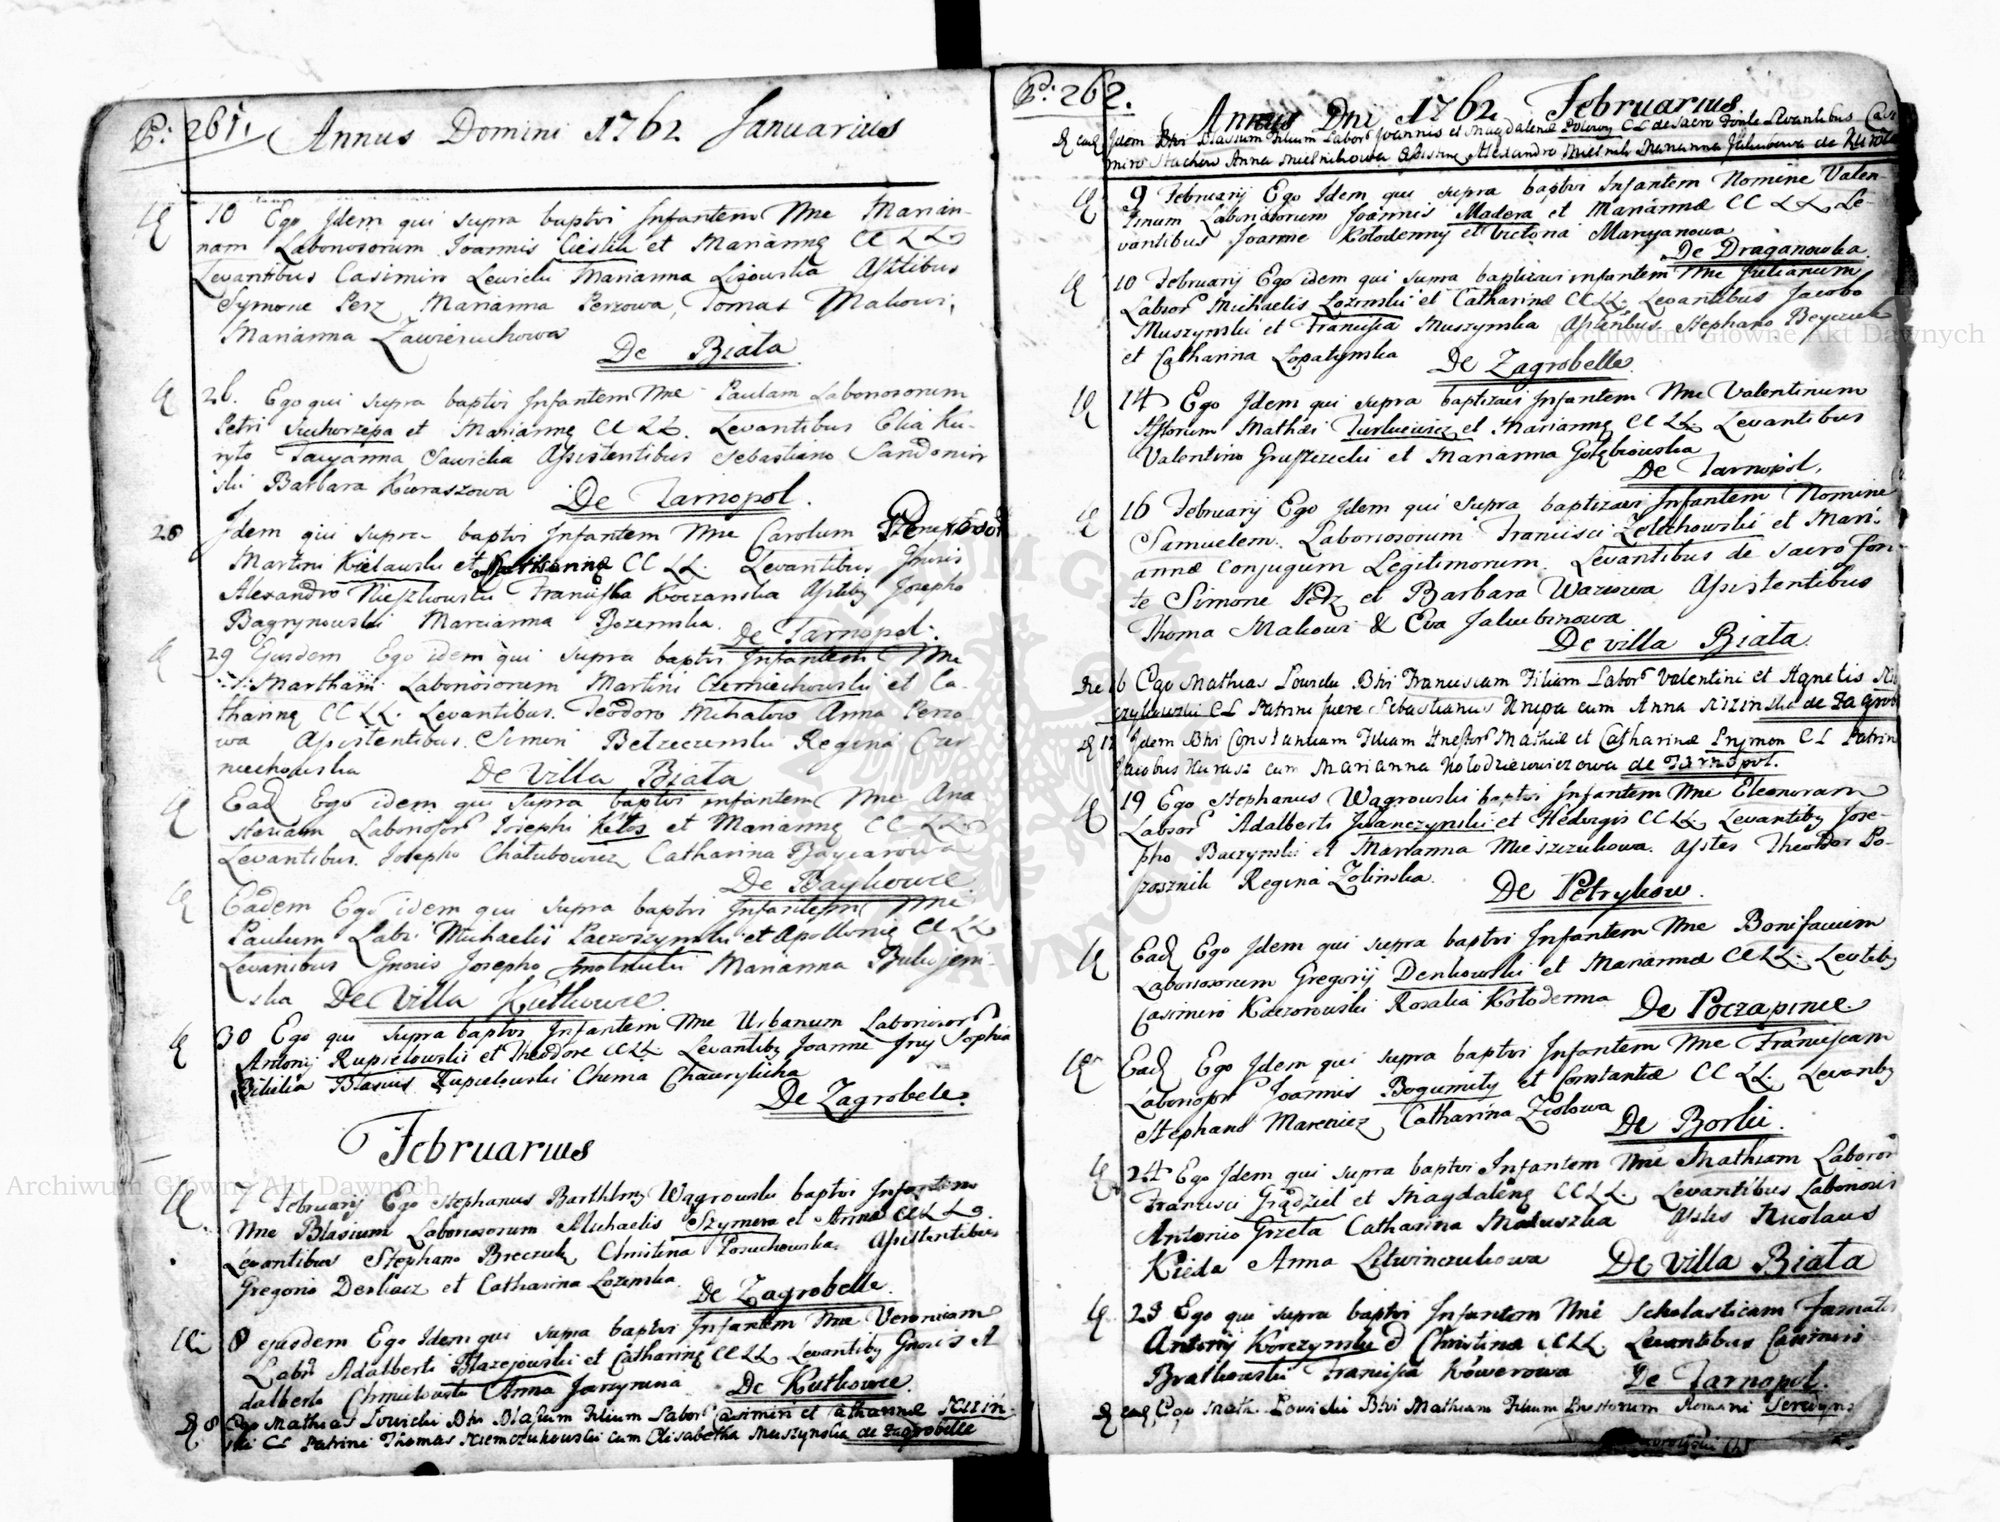 P: 261.
Annus Domini 1762 Januarius
10 Ego Idem qui supra baptvi Infantem Nne Marian-
nam Laboriosorum Joannis Cieslik et Marianne CC LL
Levantibus Casimiro Lewicki Marianna Lisowska Asstibus
Symone Perz Marianna Perzowa, Tomas Makowi,
Marianna Zawieruchowa
De Biała
26. Ego qui supra baptvi Infantem Nne Paulam Laboriosorum
Petri Suchorzepa et Marianne CC LL. Levantibus Elia Ku-
ryło Tacyanna Sawicka Assistentibus Sebastiano Sandomir
ski Barbara Kuraszowa
De Tarnopol.
26 Idem qui supra baptvi Infantem Nne Carolum
Martini Kielawski et CC LL. Levantibus Gnris
Alexandro Nieszkowski Francisca Koczanska Asstiby Josepho
Bagrynowski Marcianna Bozemska.
De Tarnopol.
29 Ejusdem Ego idem qui supra baptvi Infantem Nne
Martham Laboriosorum Martini Czerniechowski et Ca-
tharinę CC LL. Levantibus. Teodoro Mihałow Anna Perzo-
wa Assistentibus. Simon Betzeczenski Regina Czer
niechowska
De Villa Biała
Ead Ego idem qui supra baptvi infantem Nne Ana-
stasiam Laboriosor Josephi Kitos et Marianne CC LL.
Levantibus. Josepho Chałubowicz Catharina Baycarowa
De Baykowce
Eadem Ego idem qui supra baptvi Infantem Nne
Paulum Labr. Michaelis Paczoszynski et Apollonię CC LL
Levantibus Gnoris Josepho Smolnicki Marianna Bukojem-
ska De Villa Kutkowce
30 Ego qui supra baptvi Infantem Nne Urbanum Laboriosor
Antonij Rupielowski et Theodore CCLL. Levantiby Joanne Sophia
Blasius Rupielowski Chema Chawrylicha
De Zagrobele.
Februarius
7 Februarij Ego Stephanus Barthlmy Wągrowski baptvi Infantem
Nne Blasium Laboriosorum Michaelis Szymera et Annæ CC LL.
Levantibus Stephano Breczuk Christina Posuchowska. Assistentibus
Gregorio Derkacz et Catharina Lozinska
De Zagrobelle.
8 ejusdem Ego Idem qui supra baptvi Infantem Nne Veronicam
Labr Adalberti Błazejowski et Catharinę CC LL Levantiby Gnoris A
dalberto Chmielowski Anna Jarzyna
De Kutkowce.
8 Ego Mathias Łowicki Bti Blasium Filium Labor Casimiri et Catharinæ
ski CL Patrini Thomas Niemczukowski cum Elisabetha Muszynska de Zagrobelle
Pd: 262.
Annus Dni 1762 Februarius
ead Idem Btvi Blasium Filium Labor Joannis et Magdalenæ CL de sacro Fonte Levantibus Casi
miro Stachow Anna Mielnikowa Alexandro Mielnik Marianna Jakubowa de
9 Februarij Ego Idem qui supra baptvi Infantem Nomine Valen-
tinum Laboriosorum Joannis Madera et Mariannæ CC LL Le-
vantibus Joanne Kołodenny et Victoria Maryanowa
De Draganowka.
10 Februarij Ego idem qui supra baptizavi infantem Nne Julianum
Labor Michaelis Lozinski et Catharinæ CC LL. Levantibus Jacobo
Muszynski et Francisca Muszynska Asstentibus Stephano Beyczuk
et Catharina Łopatynska
De Zagrobelle.
14 Ego Idem qui supra baptizavi Infantem Nne Valentinum
Mathæi Turkiewicz et Marianne CC LL Levantibus
Valentino Gruszecki et Marianna Gołębiowska
De Tarnopol.
16 Februarij Ego Idem qui Supra baptizavi Infantem Nomine
Samuelem. Laboriosorum Francisci Zelichowski et Mari-
annæ Conjugum Legitimorum. Levantibus de sacro fon-
te Simone Perz et Barbara Waziowa Assistentibus
Thoma Makowi & Eva Jakubinowa
De villa Biała
16 Ego Mathias Łowicki Btvi Franciscam Filiam Labor Valentini et Agnetis
CL Patrini fuere Sebastianus Krupa cum Anna de Zagrob
17 Idem Btvi Constantiam Filiam Mathiæ et Catharinæ Prymon CL Patrin
Jacobus Kurasz cum Marianna Kołodziewiczowa de Tarnopol.
19 Ego Stephanus Wągrowski baptvi Infantem Nne Eleonoram
Labor Adalberti Iwanczynski et Hedvigis CC LL Levantiby Jose-
pho Baczynski et Marianna Mieszczukowa. Asstes Theodor Po-
rosznik Regina Zolinska.
De Petrykow.
Ead Ego Idem qui supra baptvi Infantem Nne Bonifacium
Laboriosorum Gregorij Denkowski et Mariannæ CC LL. Levtiby
Casimiro Kaczorowski Rosalia Kołodenna
De Poczapince
Ead Ego Idem qui supra baptvi Infantem Nne Franciscam
Laboriosor Joannis Bogumiły et Constantiæ CC LL. Levanby
Stephano Marciniez Catharina Ziołowa
De Borki.
24 Ego Idem qui supra baptvi Infantem Nne Mathiam Laborior
Francisci Grądziel et Magdalenę CC LL. Levantibus Laboriosis
Antonio Grzeta Catharina Matuszka Asstes Nicolaus
Kieda Anna Litwinczukowa De Villa Biała
23 Ego qui supra baptvi Infantem Nne Scholasticam Famator
Antonij Korczynski & Christinæ CCLL. Levantibus Casimiri
Bratkowski Francisca Kówerowa De Tarnopol.
ead, Ego Math. Łowicki Btvi Mathiam Filium Romani
Archiwum Główne Akt Dawnych
Archiwum Główne Akt Dawnych